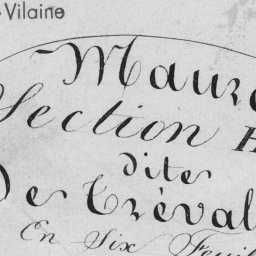 -Vilaine
Maure
Section H
dite
De Tréval
En Six Feuil